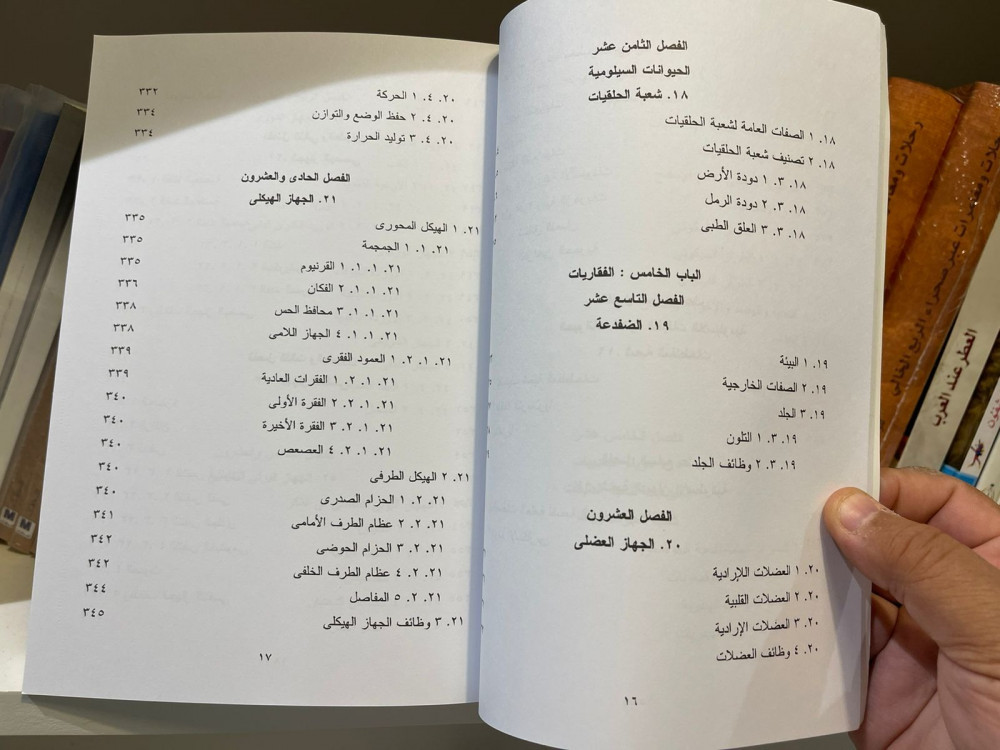 الفصل الثامن عشر
الحيوانات السيلومية
١٨. شعبة الحلقيات
١٨. ١ الصفات العامة لشعبة الحلقيات
١٨. ٢ تصنيف شعبة الحلقيات
١٨. ٣. ١ دودة الأرض
١٨. ٣. ٢ دودة الرمل
١٨. ٣. ٣ العلق الطبى
الباب الخامس : الفقاريات
الفصل التاسع عشر
١٩. الضفدعة
١٩. ١ البيئة
١٩. ٢ الصفات الخارجية
١٩. ٣ الجلد
١٩. ٣. ١ التلون
١٩. ٣. ٢ وظائف الجلد
الفصل العشرون
٢٠. الجهاز العضلى
٢٠. ١ العضلات اللاإرادية
٢٠. ٢ العضلات القلبية
٢٠. ٣ العضلات الإرادية
٢٠. ٤ وظائف العضلات
١٦
٢٠. ٤. ١ الحركة ٣٣٢
٢٠. ٤. ٢ حفظ الوضع والتوازن ٣٣٤
٢٠. ٤. ٣ توليد الحرارة ٣٣٤
الفصل الحادى والعشرون
٢١. الجهاز الهيكلى
٢١. ١ الهيكل المحورى ٣٣٥
٢١. ١. ١ الجمجمة ٣٣٥
٢١. ١. ١. ١ القرنيوم ٣٣٥
٢١. ١. ١. ٢ الفكان ٣٣٦
٢١. ١. ١. ٣ محافظ الحس ٣٣٨
٢١. ١. ١. ٤ الجهاز اللامى ٣٣٨
٢١. ١. ٢. ١ العمود الفقرى ٣٣٩
٢١. ١. ٢. ١ الفقرات العادية ٣٣٩
٢١. ١. ٢. ٢ الفقرة الأولى ٣٤٠
٢١. ١. ٢. ٣ الفقرة الأخيرة ٣٤٠
٢١. ١. ٢. ٤ العصعص ٣٤٠
٢١. ٢ الهيكل الطرفى ٣٤٠
٢١. ٢. ١ الحزام الصدرى ٣٤٠
٢١. ٢. ٢ عظام الطرف الأمامى ٣٤١
٢١. ٢. ٣ الحزام الحوضى ٣٤٢
٢١. ٢. ٤ عظام الطرف الخلفى ٣٤٢
٢١. ٢. ٥ المفاصل ٣٤٤
٢١. ٣ وظائف الجهاز الهيكلى ٣٤٥
١٧
رحلات
رحلات ومغامرات عبر صحراء الربع الخالي
العطر عند العرب
M M